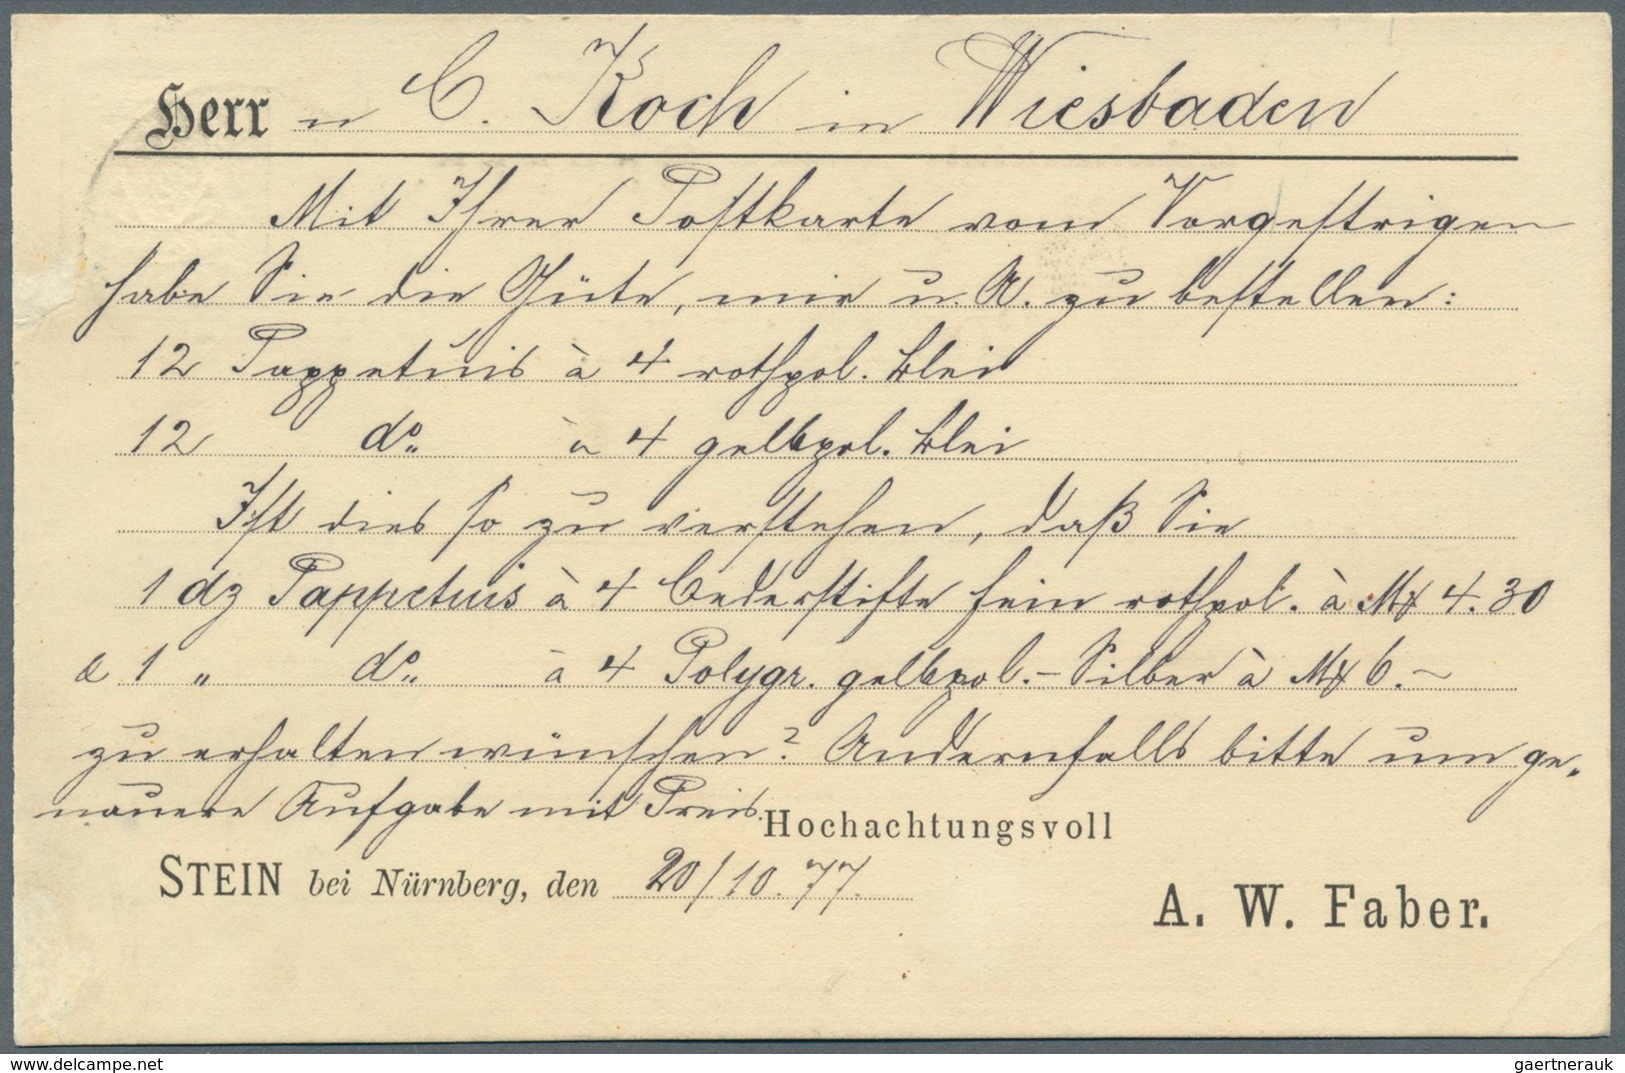 Herrn C. Koch in Wiesbaden
Mit Ihrer Postkarte vom Vorgestrigen
habe Sie die Güte, mir u. A. zu bestellen:
12 Pappetuis à 4 rothpol. Blei
12 do. à 4 gelbpol. Blei
Ist dies so zu verstehen, daß Sie
1 dz Pappetuis à 4 Cederstifte fein rothpol. à Mk 4.30
& 1 " do. à 4 Polygr. gelbpol.- Silber à Mk 6.-
zu erhalten wünschen? Andernfalls bitte um ge-
nauere Aufgabe mit Preis.
Hochachtungsvoll
STEIN bei Nürnberg, den 20/10.77.
A. W. Faber.
www.philasearch.com
gaertnerauk